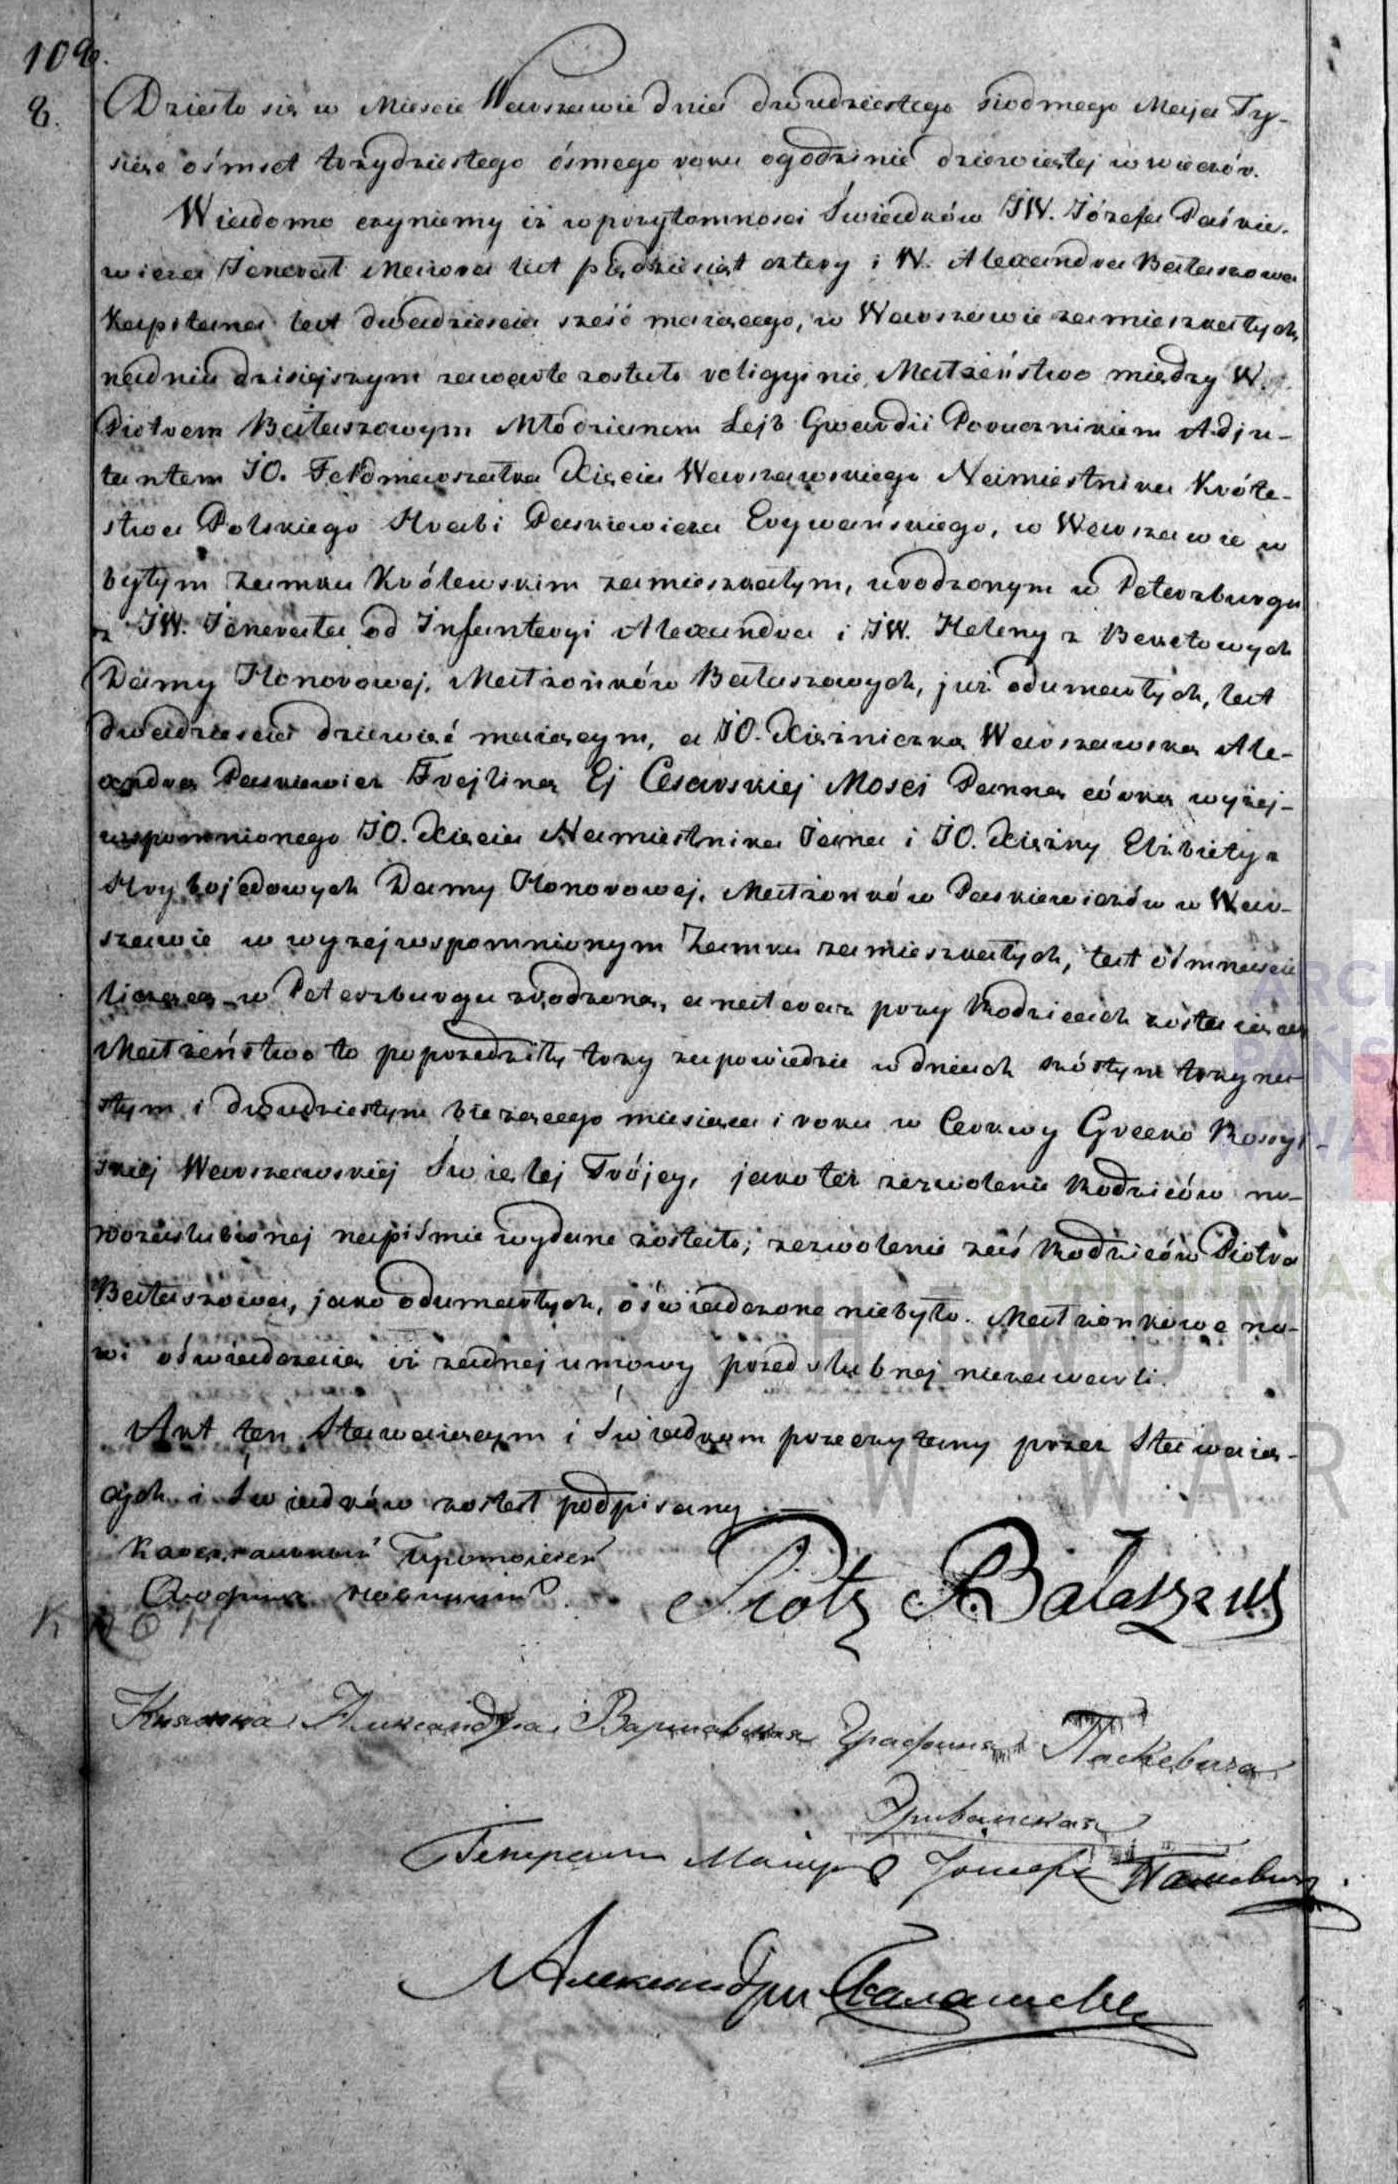 109.
8.
Działo się w Mieście Warszawie dnia dwudziestego siodmego Maja Ty-
siąc ośmset trzydziestego ósmego roku ogodzinie dziewiątej w wieczór.
Wiadomo czyniemy iż wprzytomności Świadków JW. Józefa Paśkie-
wicza Jenerał Maiora lat piędziesiąt cztery i W. Alexandra Bałaszowa
Kapitana lat dwadzieścia sześć maiącego, w Warszawie zamieszkałych,
nadniu dzisiejszym zawarte zostało religijnie Małżeństwo między W.
Piotrem Bałaszowym Młodzianem Lejb Gwardii Porucznikiem Adju-
tantem JO. Feldmarszałka Xięcia Warszawskiego Namiestnika Króle-
stwa Polskiego Hrabi Paskiewicza Erywańskiego, w Warszawie w
byłym Zamku Królewskim zamieszkałym, urodzonym w Peterzburgu
z JW. Jenerała od Infanteryi Alexandra i JW. Heleny z Beketowych
Damy Honorowej, Małżonków Bałaszowych, już odumarłych, lat
dwadzieścia dziewięć maiącym, a JO. Xiężniczką Warszawską Ale-
xandrą Paskiewicz Frejliną Ej Cesarskiej Mości Panną córką wyżej-
wspomnionego JO. Xięcia Namiestnika Jana i JO. Xiężny Elżbiety z
Hrybojedowych Damy Honorowej, Małżonków Paskiewiczów w War-
szawie w wyżejwspomnionym Zamku zamieszkałych, lat ośmnaście
liczącą w Peterzburgu zrodzoną, a nateraz przy Rodzicach zostaiącą
Małżeństwo to poprzedziły trzy zapowiedzie w dniach szóstym trzyna-
stym i dwudziestym bieżącego miesiąca i roku w Cerkwy Greeko Rossyi-
skiej Warszawskiej Świętej Trójcy, jako też zezwolenie Rodziców no-
wozaślubionej napiśmie wydane zostało; zezwolenie zaś Rodziców Piotra
Bałaszowa, jako odumarłych, oświadczone niebyło. Małżonkowie no-
wi oświadczaią iż żadnej umowy przedślubnej niezawarli.
Akt ten Stawaiącym i Świadkom przeczytany przez Stawaią-
cych i Świadków został podpisany.
Кафедральный Протоиерей
Piotr Bałaszow
Княжна Александра Варшавская Графиня Паскевича
Эриванская
Генерал Маиор Іосифъ Паскевичъ.
Александръ Балашевъ
ARCHIWUM
W WAR
SKANOTEKA.